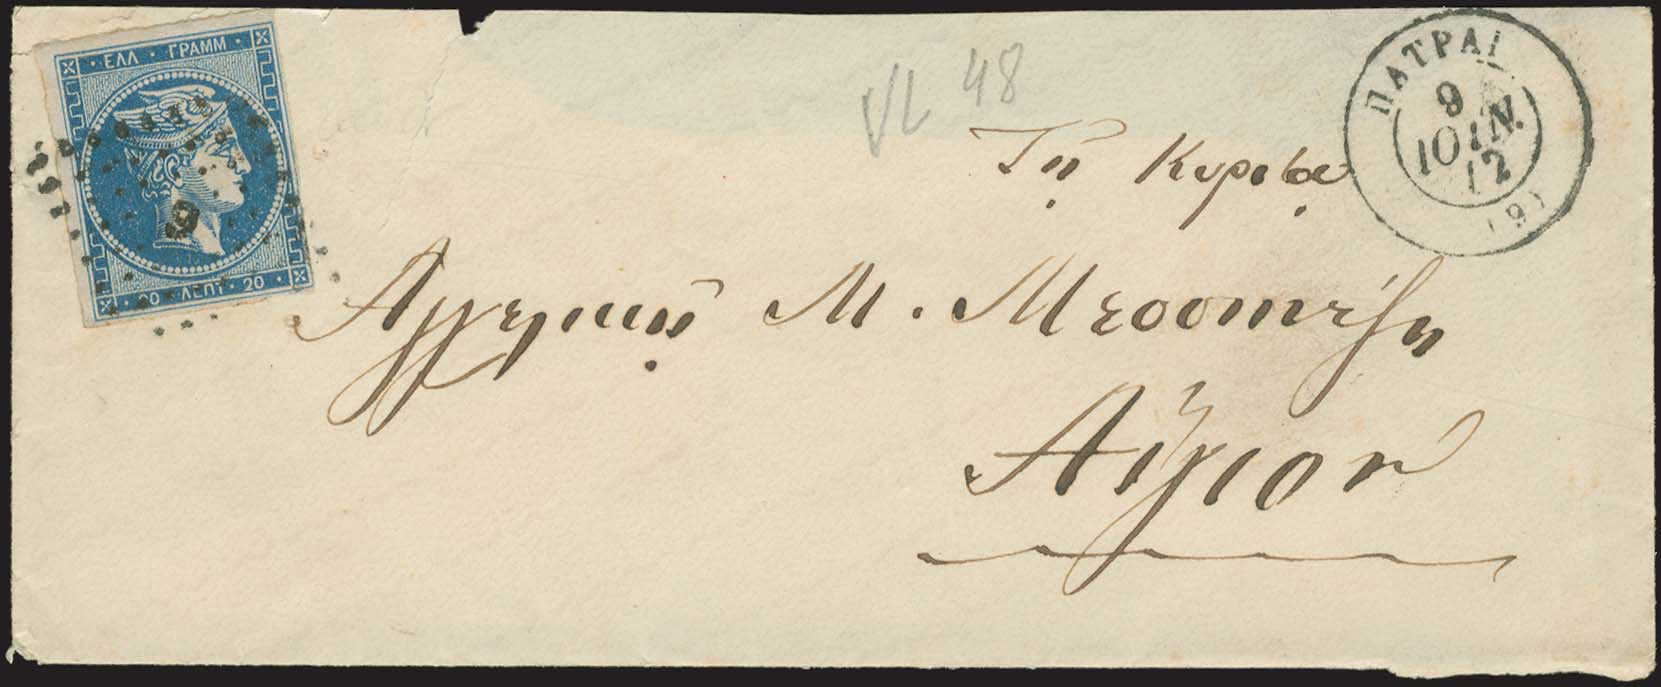 · ΕΛΛ · ΓΡΑΜΜ ·
9
· 20 · ΛΕΠΤ · 20 ·
VL 48
ΠΑΤΡΑΙ
9
ΙΟΥΝ.
72
(9)
Τῇ Κυρίᾳ
Ἀγγελικῇ Μ. Μεσσηνέζη
Αἴγιον